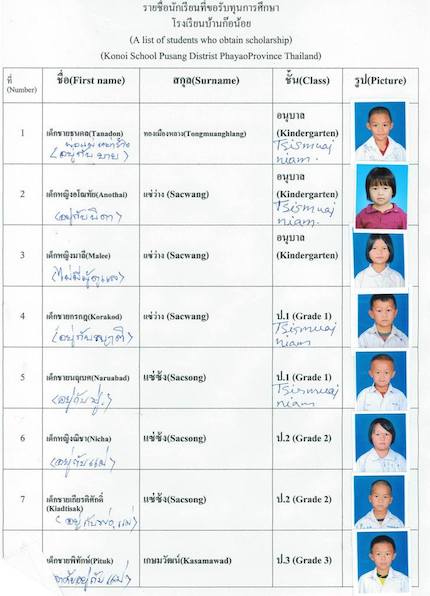 รายชื่อนักเรียนที่ขอรับทุนการศึกษา
โรงเรียนบ้านก๊อน้อย
(A list of students who obtain scholarship)
(Konoi School Pusang Distrist PhayaoProvince Thailand)
ที่ (Number) ชื่อ(First name) สกุล(Surname) ชั้น(Class) รูป(Picture)
1 เด็กชายธนดล(Tanadon) ทองเมืองหลวง(Tongmuanghlang) อนุบาล (Kindergarten)
(อยู่กับยาย) Tsismuaj niam.
2 เด็กหญิงอโณทัย(Anothai) แซ่ว่าง (Sacwang) อนุบาล (Kindergarten)
(อยู่กับบิดา) Tsismuaj niam.
3 เด็กหญิงมาลี(Malee) แซ่ว่าง (Sacwang) อนุบาล (Kindergarten)
4 เด็กชายกรกฎ(Korakod) แซ่ว่าง (Sacwang) ป.1 (Grade 1)
(อยู่กับญาติ) Tsismuaj niam
5 เด็กชายนฤเบศ(Naruabad) แซ่ซ้ง(Sacsong) ป.1 (Grade 1)
(อยู่กับปู่) Tsismuaj niam
6 เด็กหญิงณิชา(Nicha) แซ่ซ้ง(Sacsong) ป.2 (Grade 2)
(อยู่กับแม่)
7 เด็กชายเกียรติศักดิ์ (Kiadtisak) แซ่ซ้ง(Sacsong) ป.2 (Grade 2)
(อยู่กับพ่อ,แม่)
เด็กชายพิทักษ์(Pituk) เกษมวัฒน์(Kasamawad) ป.3 (Grade 3)
อยู่กับแม่)